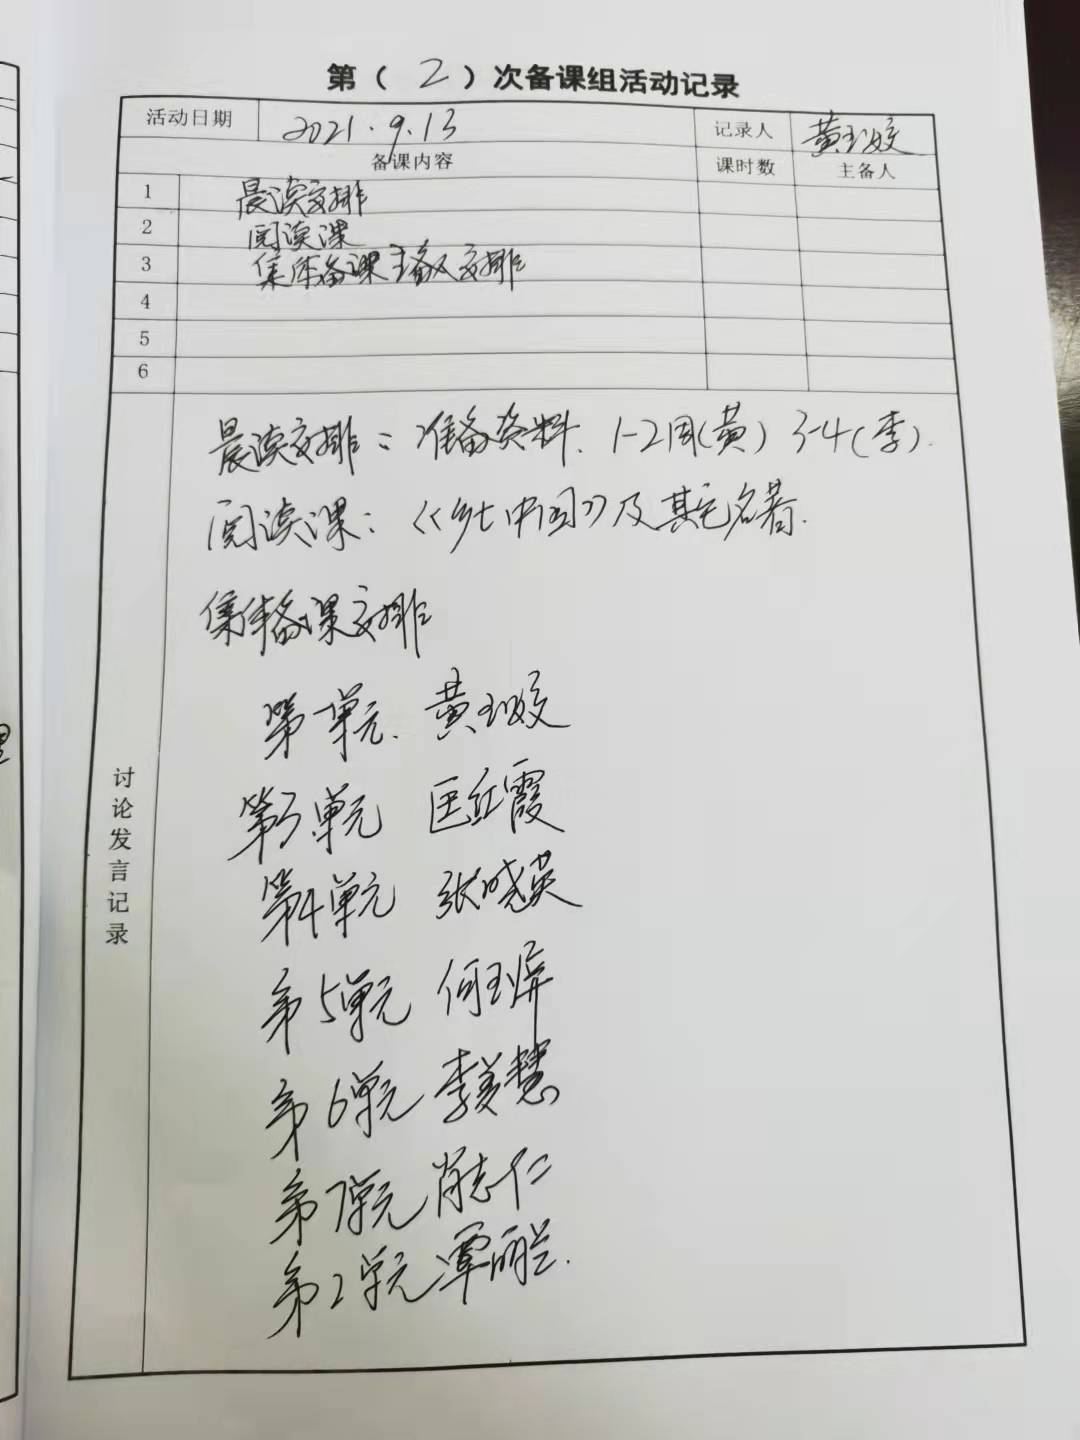 第（ 2 ）次备课组活动记录
活动日期 2021.9.13 记录人 黄玉姣
备课内容 课时数 主备人
1 晨读安排
2 阅读课
3 集体备课主备人安排
4
5
6
讨论发言记录
晨读安排：准备资料. 1-2周(黄) 3-4(李).
阅读课：《乡土中国》及其它名著.
集体备课安排
第1单元. 黄玉姣
第3单元 匡红霞
第4单元 张晓英
第5单元 何玉屏
第6单元 李美慧
第7单元 肖志仁
第2单元 覃丽兰.